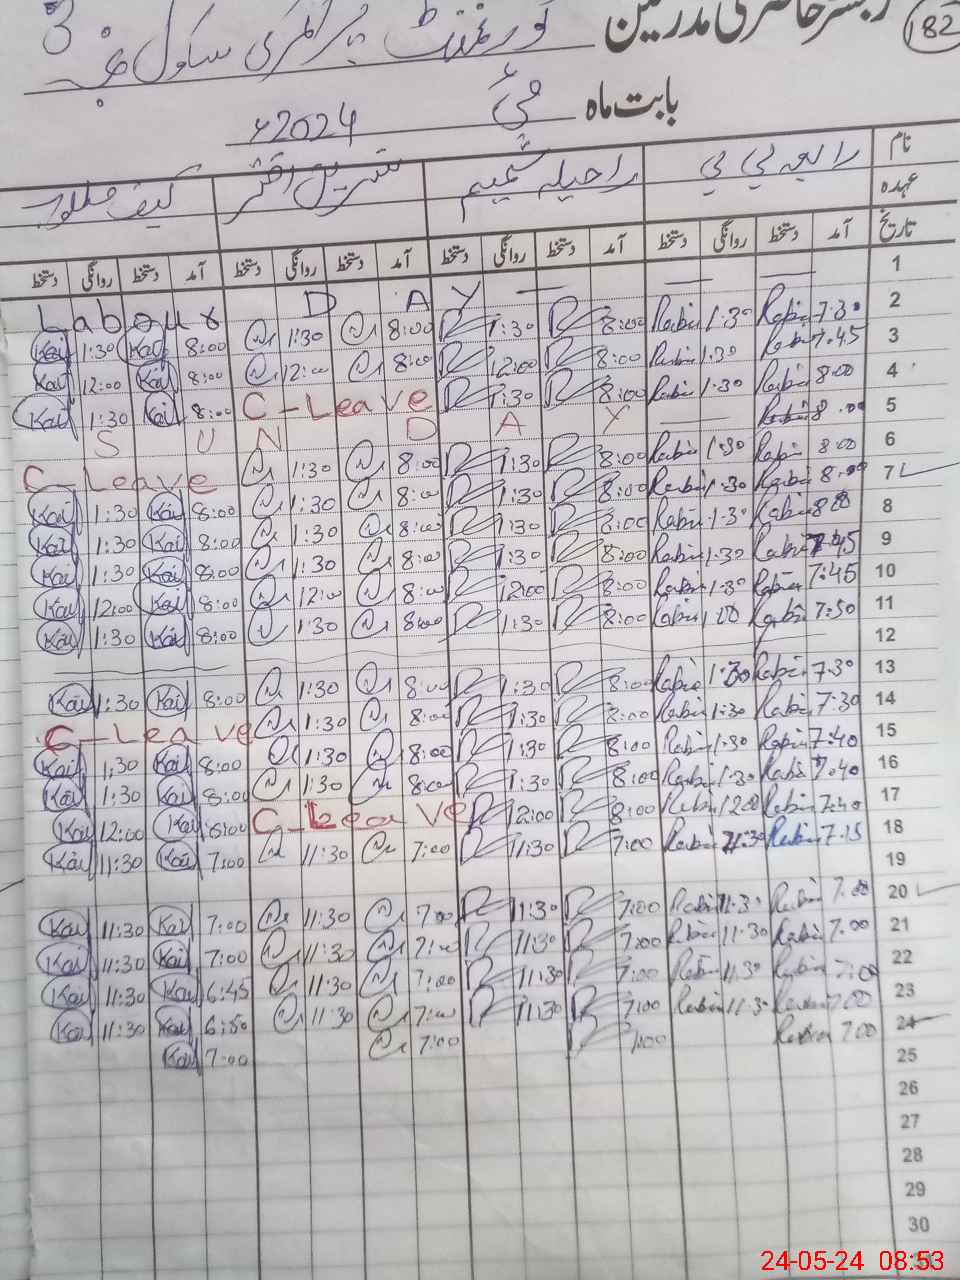 رجسٹر حاضری مدرسین گورنمنٹ پرائمری سکول 182
بابت ماہ مئی 2024ء
نام رابعہ بی بی راحیلہ شمیم نسرین اختر
عہدہ
تاریخ آمد دستخط روانگی دستخط آمد دستخط روانگی دستخط آمد دستخط روانگی دستخط آمد دستخط روانگی دستخط
1 Labour DAY
2 7:30 Rabia 1:30 Rabia 8:00 1:30 8:00 1:30 8:00 Kai 1:30 Kai
3 7:45 Rabia 1:30 Rabia 8:00 12:00 8:00 12:00 8:00 Kai 12:00 Kai
4 8:00 Rabia 1:30 Rabia 8:00 1:30 C-Leave 8:00 Kai 1:30 Kai
5 8:00 Rabia SUNDAY
6 8:00 Rabia 1:30 Rabia 8:00 1:30 8:00 1:30 C-Leave
7 8:00 Rabia 1:30 Rabia 8:00 1:30 8:00 1:30 8:00 Kai 1:30 Kai
8 8:00 Rabia 1:30 Rabia 8:00 1:30 8:00 1:30 8:00 Kai 1:30 Kai
9 7:45 Rabia 1:30 Rabia 8:00 1:30 8:00 1:30 8:00 Kai 1:30 Kai
10 7:45 Rabia 1:30 Rabia 8:00 12:00 8:00 12:00 8:00 Kai 12:00 Kai
11 7:50 Rabia 1:00 Rabia 8:00 1:30 8:00 1:30 8:00 Kai 1:30 Kai
12
13 7:30 Rabia 1:30 Rabia 8:00 1:30 8:00 1:30 8:00 Kai 1:30 Kai
14 7:30 Rabia 1:30 Rabia 8:00 1:30 8:00 1:30 C-Leave
15 7:40 Rabia 1:30 Rabia 8:00 1:30 8:00 1:30 8:00 Kai 1:30 Kai
16 7:40 Rabia 1:30 Rabia 8:00 1:30 8:00 1:30 8:00 Kai 1:30 Kai
17 7:40 Rabia 12:00 Rabia 8:00 12:00 C-Leave 8:00 Kai 12:00 Kai
18 7:15 Rabia 11:30 Rabia 7:00 11:30 7:00 11:30 7:00 Kai 11:30 Kai
19
20 7:00 Rabia 11:30 Rabia 7:00 11:30 7:00 11:30 7:00 Kai 11:30 Kai
21 7:00 Rabia 11:30 Rabia 7:00 11:30 7:00 11:30 7:00 Kai 11:30 Kai
22 7:00 Rabia 11:30 Rabia 7:00 11:30 7:00 11:30 6:45 Kai 11:30 Kai
23 7:00 Rabia 11:30 Rabia 7:00 11:30 7:00 11:30 6:50 Kai 11:30 Kai
24 7:00 Rabia 7:00 7:00 7:00 Kai
25
26
27
28
29
30
31
24-05-24 08:53